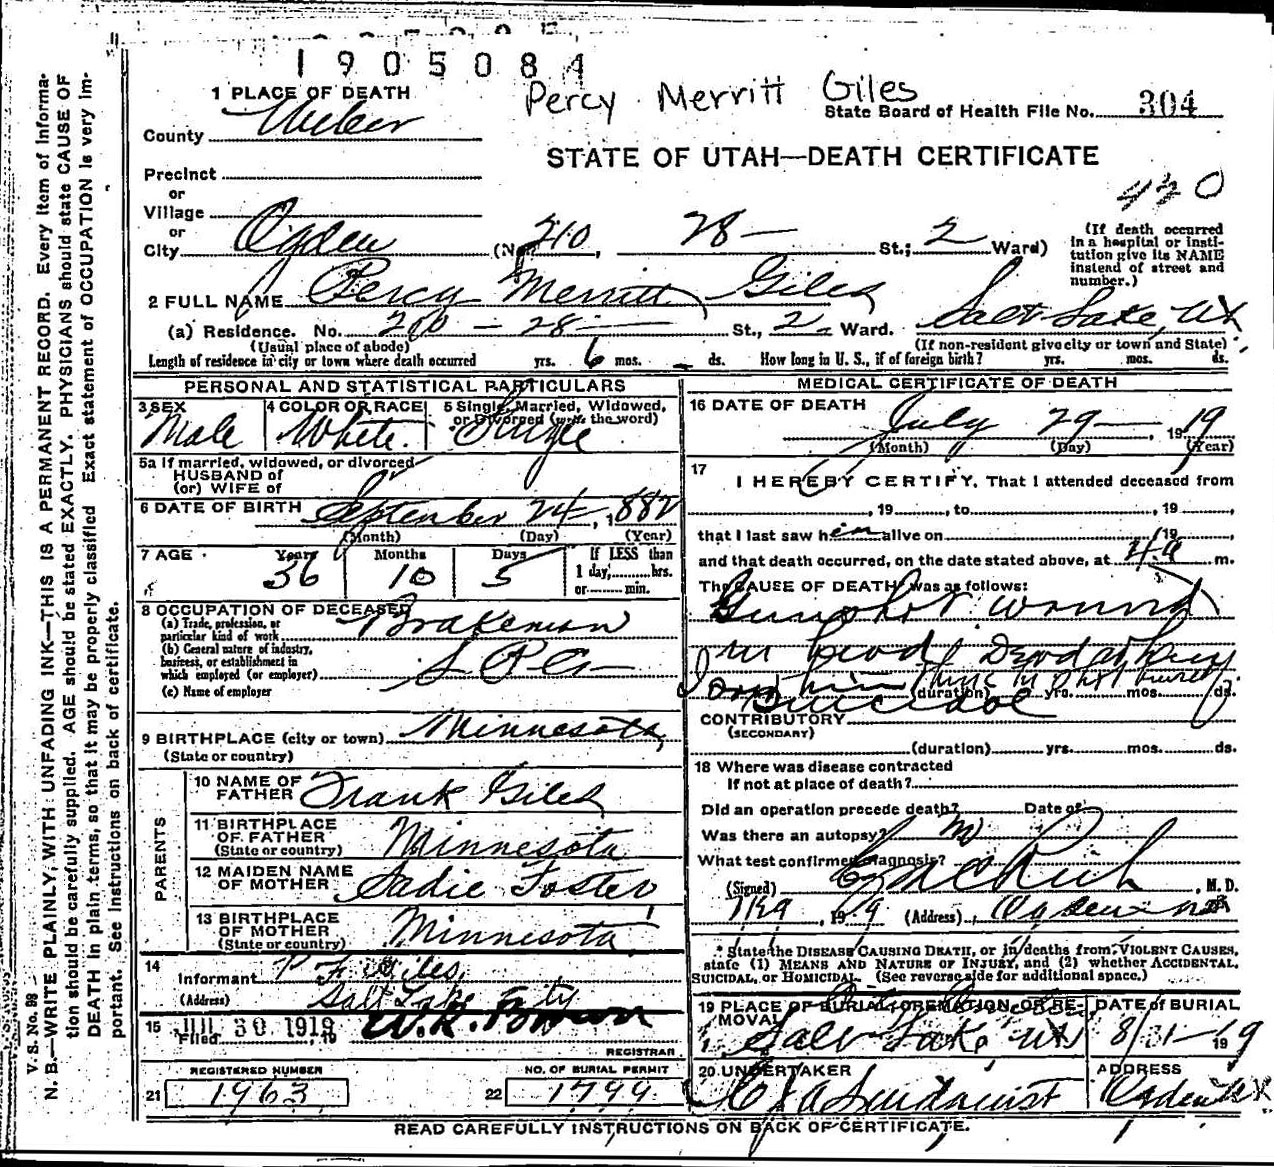 1905084
Percy Merritt Giles
1 PLACE OF DEATH
State Board of Health File No. 304
County Weber
STATE OF UTAH—DEATH CERTIFICATE
Precinct
or
Village
or
City Ogden (No. 210, 28 — St.; 2 Ward)
(If death occurred in a hospital or institution give its NAME instead of street and number.)
2 FULL NAME Percy Merritt Giles
(a) Residence. No. 200 — 28 — St., 2 Ward. Salt Lake, Ut
(Usual place of abode) (If non-resident give city or town and State)
Length of residence in city or town where death occurred yrs. 6 mos. — ds. How long in U. S., if of foreign birth? yrs. mos. ds.
PERSONAL AND STATISTICAL PARTICULARS
3 SEX Male
4 COLOR OR RACE White
5 Single, Married, Widowed, or Divorced (write the word) Single
5a If married, widowed, or divorced
HUSBAND of
(or) WIFE of
6 DATE OF BIRTH September 24, 1882
(Month) (Day) (Year)
7 AGE Years 36 Months 10 Days 5 If LESS than 1 day, hrs. or min.
8 OCCUPATION OF DECEASED
(a) Trade, profession, or particular kind of work Brakeman
(b) General nature of industry, business, or establishment in which employed (or employer) S P Co
(c) Name of employer
9 BIRTHPLACE (city or town) Minnesota
(State or country)
PARENTS
10 NAME OF FATHER Frank Giles
11 BIRTHPLACE OF FATHER (State or country) Minnesota
12 MAIDEN NAME OF MOTHER Sadie Foster
13 BIRTHPLACE OF MOTHER (State or country) Minnesota
14
Informant P F Giles
(Address) Salt Lake City
15 Filed JUL 30 1919, 19
REGISTRAR
REGISTERED NUMBER
21 1963
NO. OF BURIAL PERMIT
22 1799
MEDICAL CERTIFICATE OF DEATH
16 DATE OF DEATH
July 29 — , 1919
(Month) (Day) (Year)
17 I HEREBY CERTIFY, That I attended deceased from
, 19 , to , 19 ,
that I last saw him alive on , 19 ,
and that death occurred, on the date stated above, at 4 a m.
The CAUSE OF DEATH was as follows:
Gunshot wound
in head
(duration) yrs. mos. ds.
Suicidal
CONTRIBUTORY
(SECONDARY)
(duration) yrs. mos. ds.
18 Where was disease contracted
If not at place of death?
Did an operation precede death? Date of
Was there an autopsy?
What test confirmed diagnosis?
(Signed) Rich, M. D.
7/29, 1919 (Address) Ogden
* State the DISEASE CAUSING DEATH, or in deaths from VIOLENT CAUSES, state (1) MEANS AND NATURE OF INJURY, and (2) whether ACCIDENTAL, SUICIDAL, OR HOMICIDAL. (See reverse side for additional space.)
19 PLACE OF BURIAL, CREMATION, OR REMOVAL
Salt Lake, Ut
DATE of BURIAL
8/31 — 1919
20 UNDERTAKER
Lindquist
ADDRESS
Ogden Ut
READ CAREFULLY INSTRUCTIONS ON BACK OF CERTIFICATE.
V. S. No. 98
N. B.—WRITE PLAINLY, WITH UNFADING INK—THIS IS A PERMANENT RECORD. Every item of information should be carefully supplied. AGE should be stated EXACTLY. PHYSICIANS should state CAUSE OF DEATH in plain terms, so that it may be properly classified. Exact statement of OCCUPATION is very important. See Instructions on back of certificate.